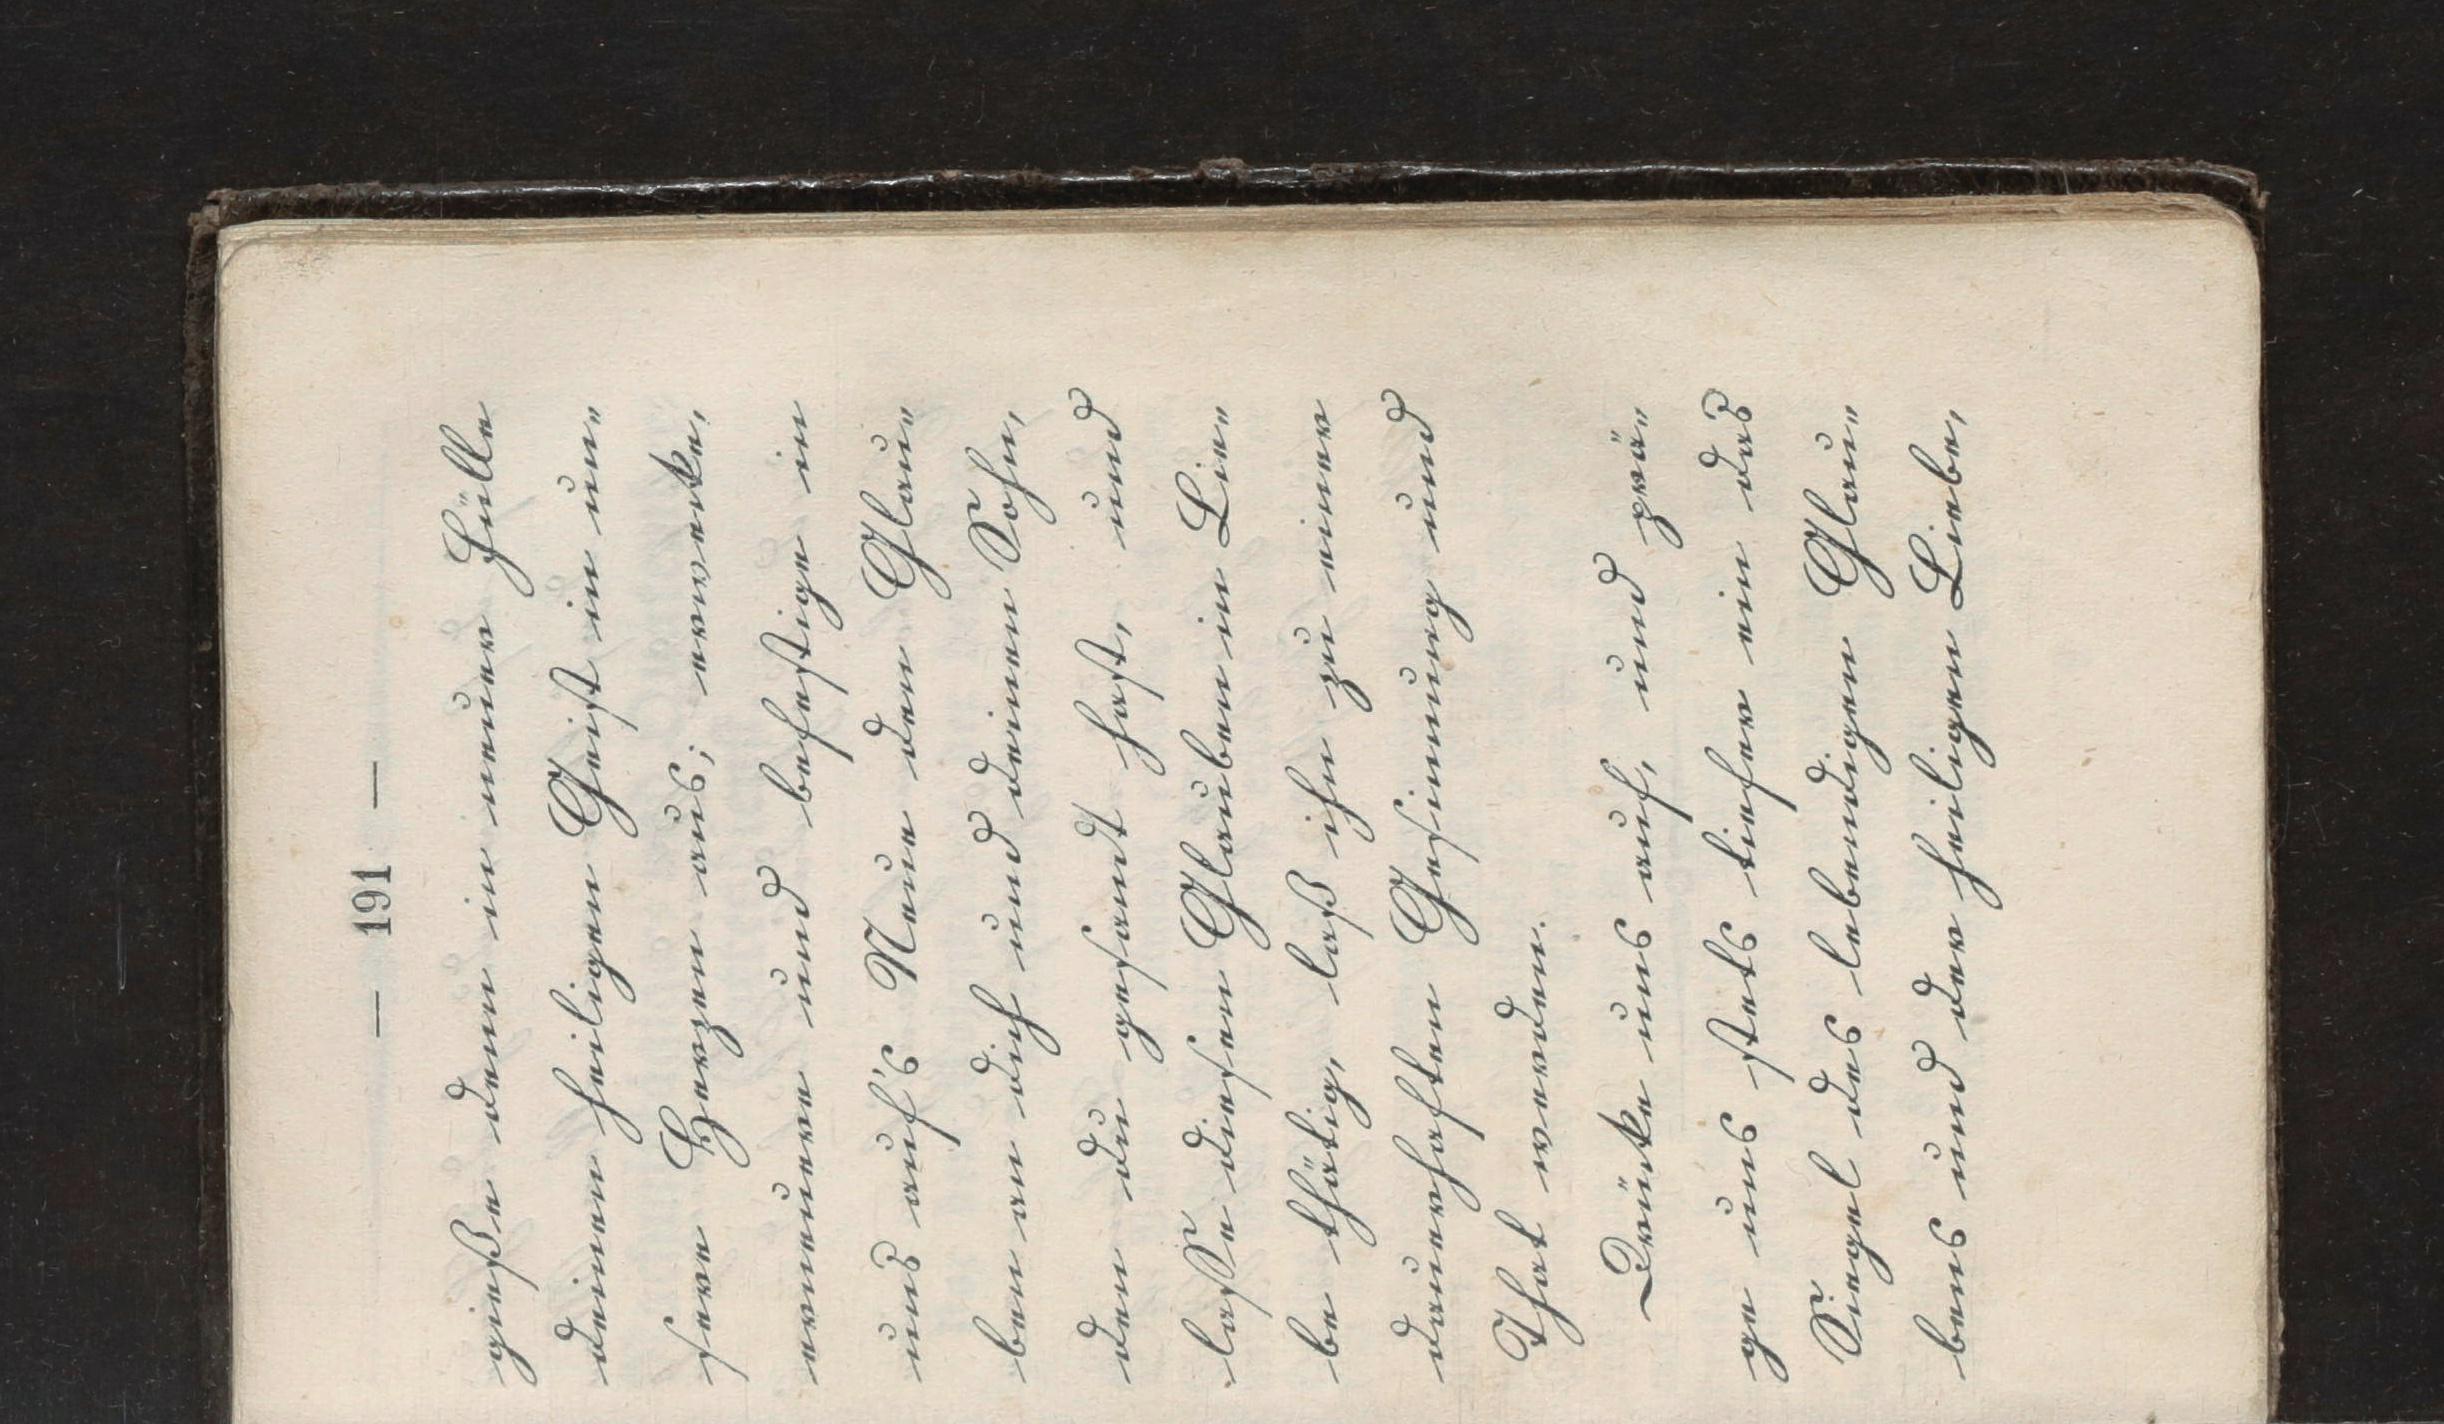 — 191 —
gieße denn in neuer Fülle
deinen heiligen Geist in un„
sere Herzen aus; erwecke,
erneuere und befestige in
uns auf's Neue den Glau„
ben an dich und deinen Sohn,
den du gesandt hast, und
laſſe diesen Glauben in Lie„
be thätig, laß ihn zu einer
dauerhaften Gesinnung und
That werden.
Drücke uns auf, und prä„
ge uns stets tiefer ein das
Siegel des lebendigen Glau„
bens und der heiligen Liebe,